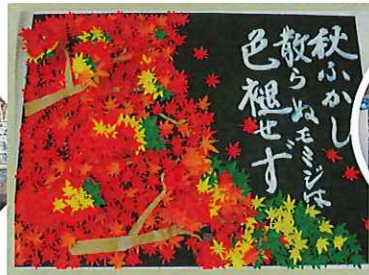 秋ふかし
散らぬモミジは
色褪せず